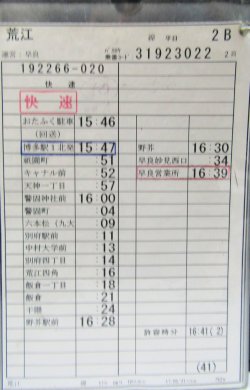 荒江 2B
運営:早良 31923022 2
192266-020
快速
快速
おたふく駐車 15 46
(回送)
博多駅1北発 15 47
祇園町 51
キャナル前 52
天神一丁目 57
警固神社前 16 00
警固町 04
六本松(九大 09
別府駅前 11
中村大学前 13
別府四丁目 14
荒江四角 16
飯倉一丁目 18
飯倉 21
干隈 24
野芥駅前 16 28
野芥 16 30
早良妙見西口 34
早良営業所 16 39
16:41(2)
(41)